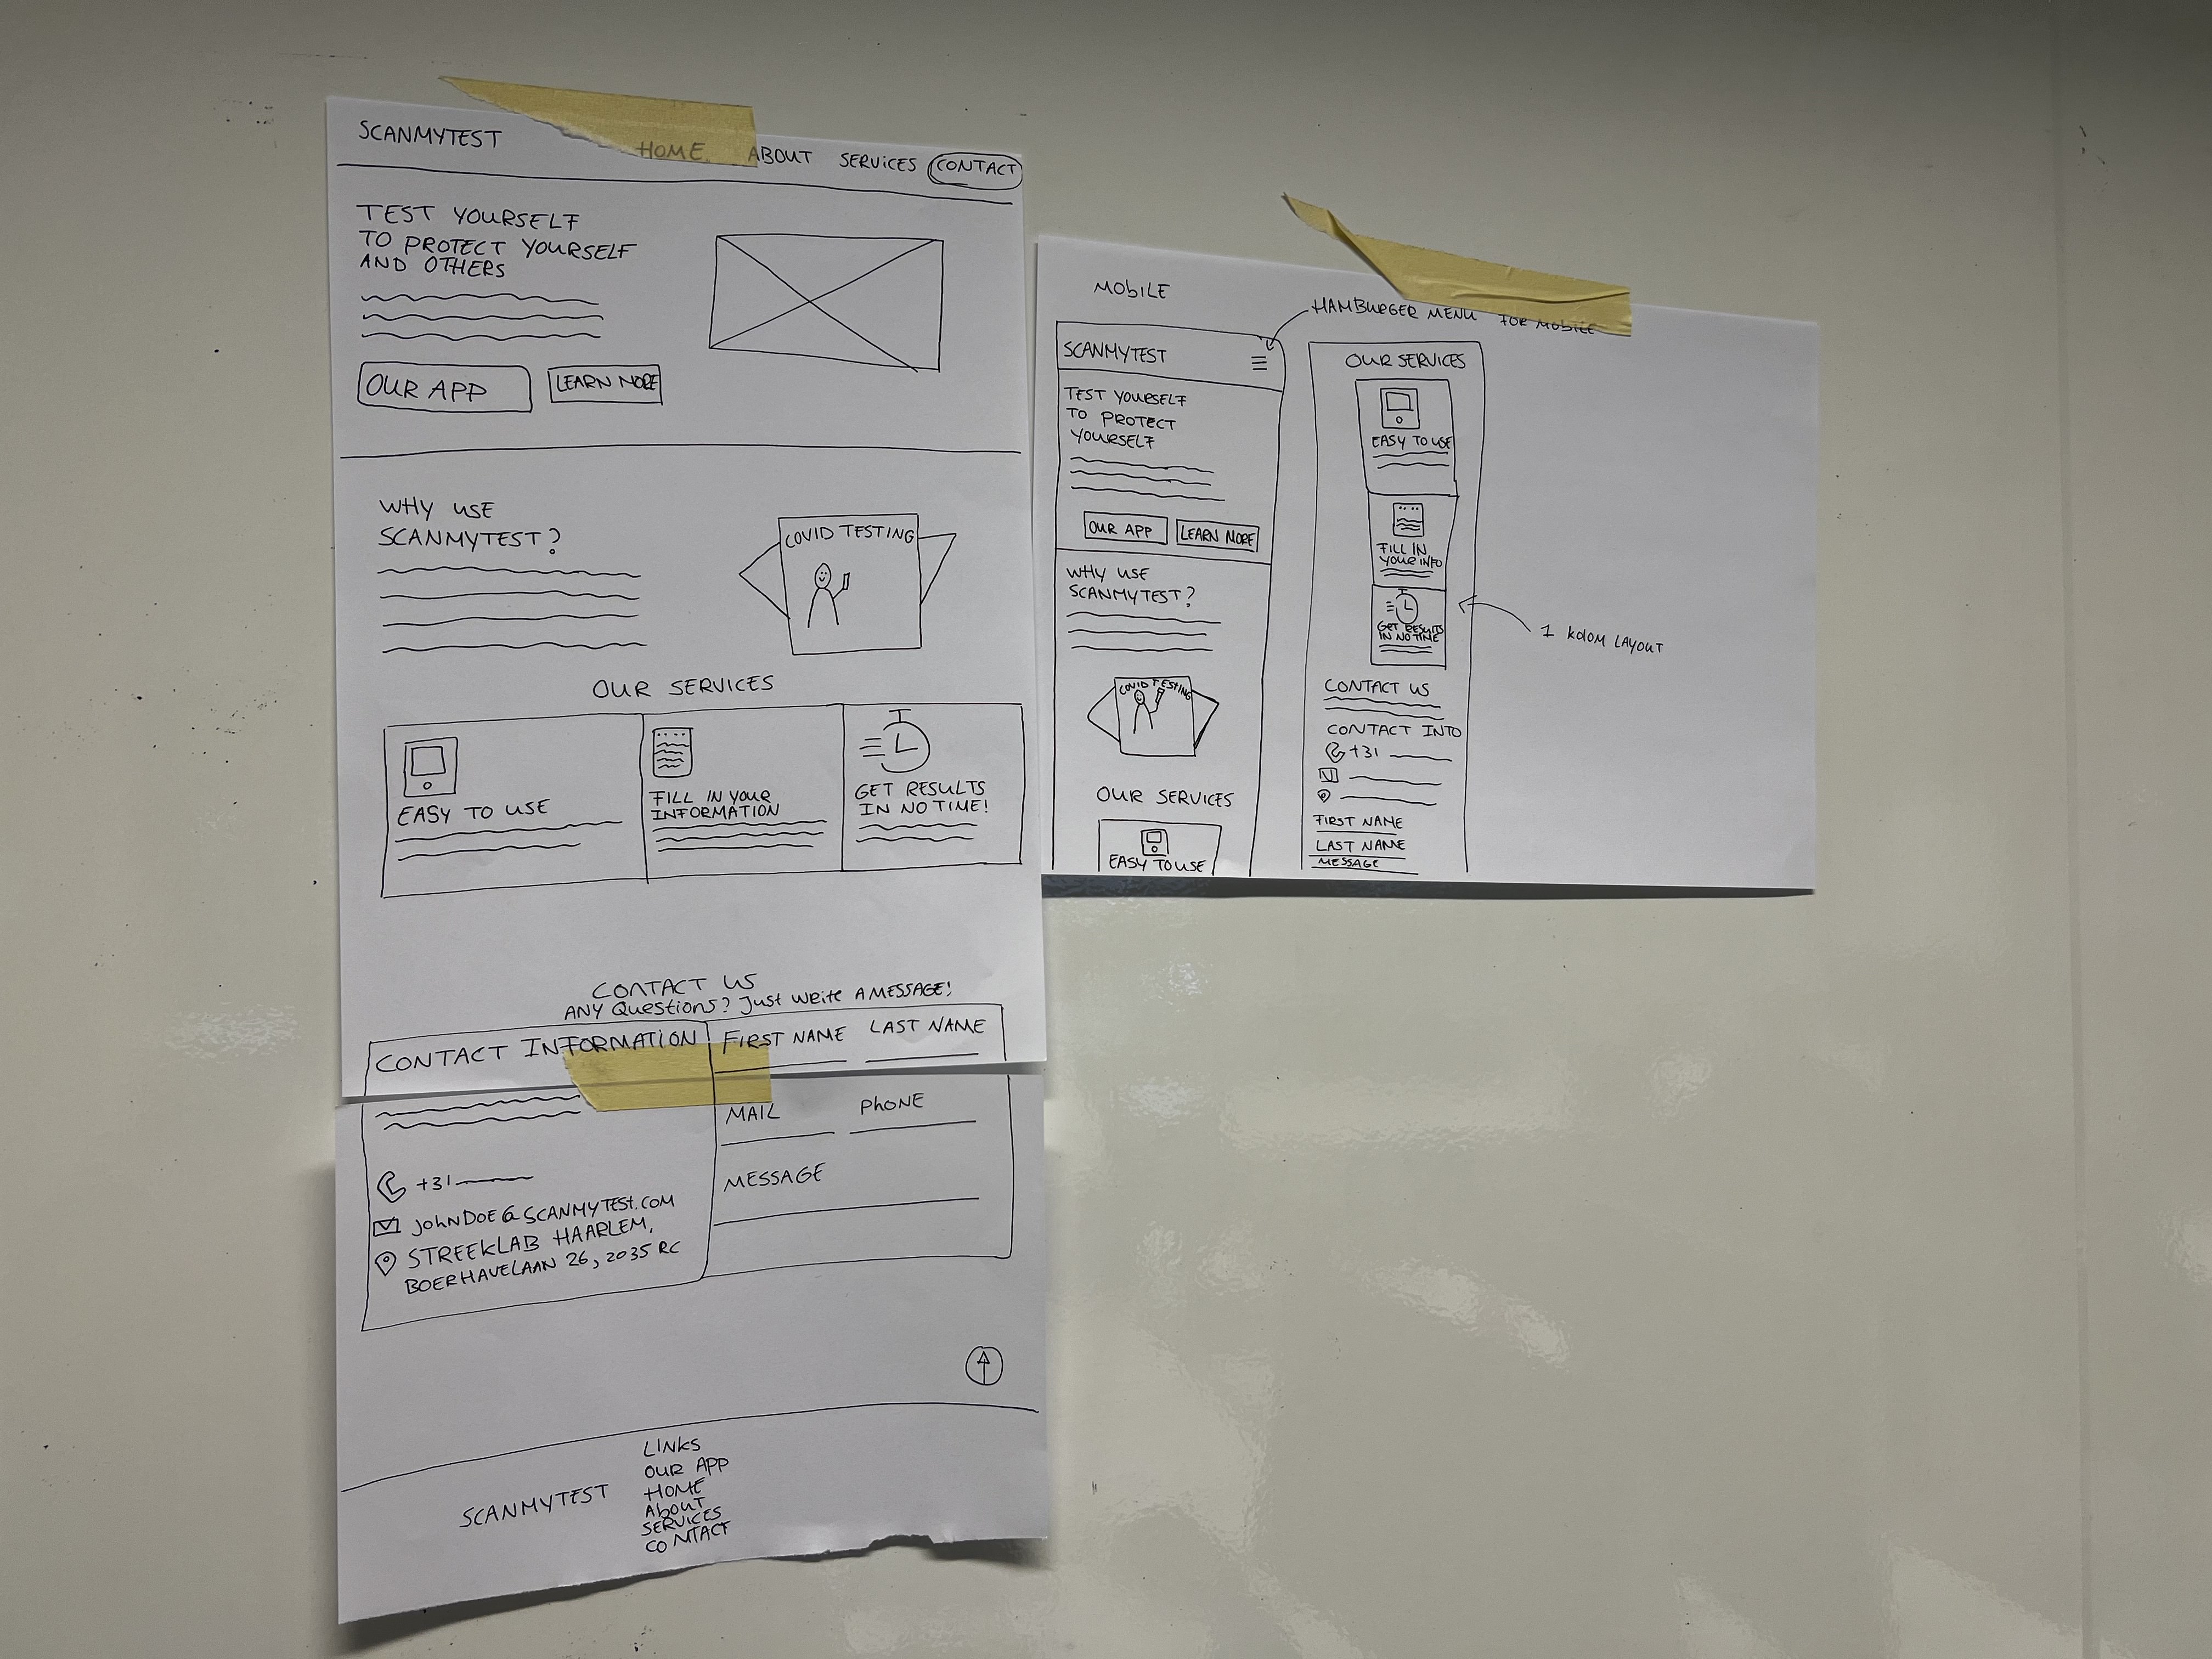 SCANMYTEST
HOME ABOUT SERVICES CONTACT
TEST YOURSELF
TO PROTECT YOURSELF
AND OTHERS
OUR APP LEARN MORE
WHY USE
SCANMYTEST?
COVID TESTING
OUR SERVICES
EASY TO USE
FILL IN YOUR
INFORMATION
GET RESULTS
IN NO TIME!
CONTACT US
ANY Questions? Just write A MESSAGE!
CONTACT INFORMATION
+31
JohNDOE@SCANMYTEST.COM
STREEKLAB HAARLEM,
BOERHAVELAAN 26, 2035 RC
FIRST NAME LAST NAME
MAIL PHONE
MESSAGE
SCANMYTEST
LINKS
OUR APP
HOME
AboUT
SERVICES
CONTACT
MObILE
HAMBURGER MENU FOR MObILE
SCANMYTEST
TEST YOURSELF
TO PROTECT
YOURSELF
OUR APP LEARN MORE
WHY USE
SCANMYTEST?
COVID TESTING
OUR SERVICES
EASY TO USE
OUR SERVICES
EASY TO USE
FILL IN
YOUR INFO
GET RESULTS
IN NO TIME
1 KOlOM LAYOUT
CONTACT US
CONTACT INTO
+31
FIRST NAME
LAST NAME
MESSAGE